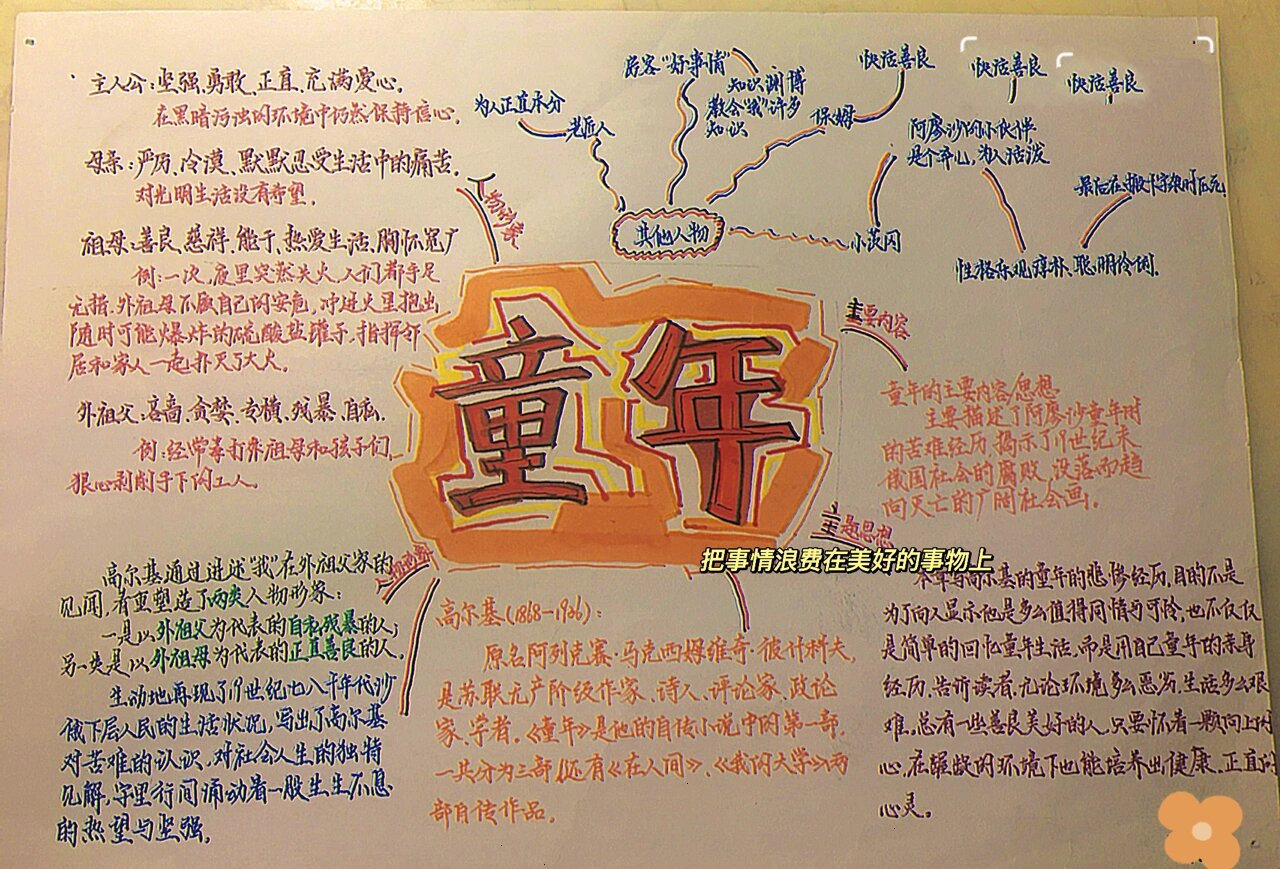 主人公：坚强、勇敢、正直、充满爱心。
在黑暗污浊的环境中仍然保持信心。
母亲：严厉、冷漠、默默忍受生活中的痛苦。
对光明生活没有希望。
祖母：善良、慈祥、能干、热爱生活、胸怀宽广
例：一次，夜里突然失火，人们都手足
无措，外祖母不顾自己的安危，冲进火里抱出
随时可能爆炸的硫酸盐罐子，指挥邻
居和家人一起扑灭了大火。
外祖父：吝啬、贪婪、专横、残暴、自私。
例：经常毒打外祖母和孩子们，
狠心剥削手下的工人。
人物形象
为人正直本分
老匠人
房客“好事情”
知识渊博
教会“我”许多
知识
保姆
快活善良
快活善良
快活善良
阿廖沙的小伙伴
是个弃儿，为人活泼
性格乐观淳朴、聪明伶俐。
其他人物
小茨冈
童年
主要内容
童年的主要内容/思想
主要描述了阿廖沙童年时
的苦难经历，揭示了19世纪末
俄国社会的腐败，没落而趋
向灭亡的广阔社会画。
主题思想
把事情浪费在美好的事物上
本章写高尔基的童年的悲惨经历，目的不是
为了向人显示他是多么值得同情与可怜，也不仅仅
是简单的回忆童年生活，而是用自己童年的亲身
经历，告诉读者，无论环境多么恶劣，生活多么艰
难，总有一些善良美好的人，只要怀着一颗向上的
心，在艰难的环境下也能培养出健康、正直的
心灵。
高尔基通过讲述“我”在外祖父家的
见闻，着重塑造了两类人物形象：
一是以外祖父为代表的自私残暴的人；
另一类是以外祖母为代表的正直善良的人。
生动地再现了19世纪七八十年代沙
俄下层人民的生活状况，写出了高尔基
对苦难的认识，对社会人生的独特
见解，字里行间涌动着一股生生不息
的热望与坚强。
高尔基（1868—1906）：
原名阿列克赛·马克西姆维奇·彼什科夫，
是苏联无产阶级作家、诗人、评论家、政论
家、学者。《童年》是他的自传小说中的第一部，
一共分为三部，还有《在人间》、《我的大学》两
部自传作品。